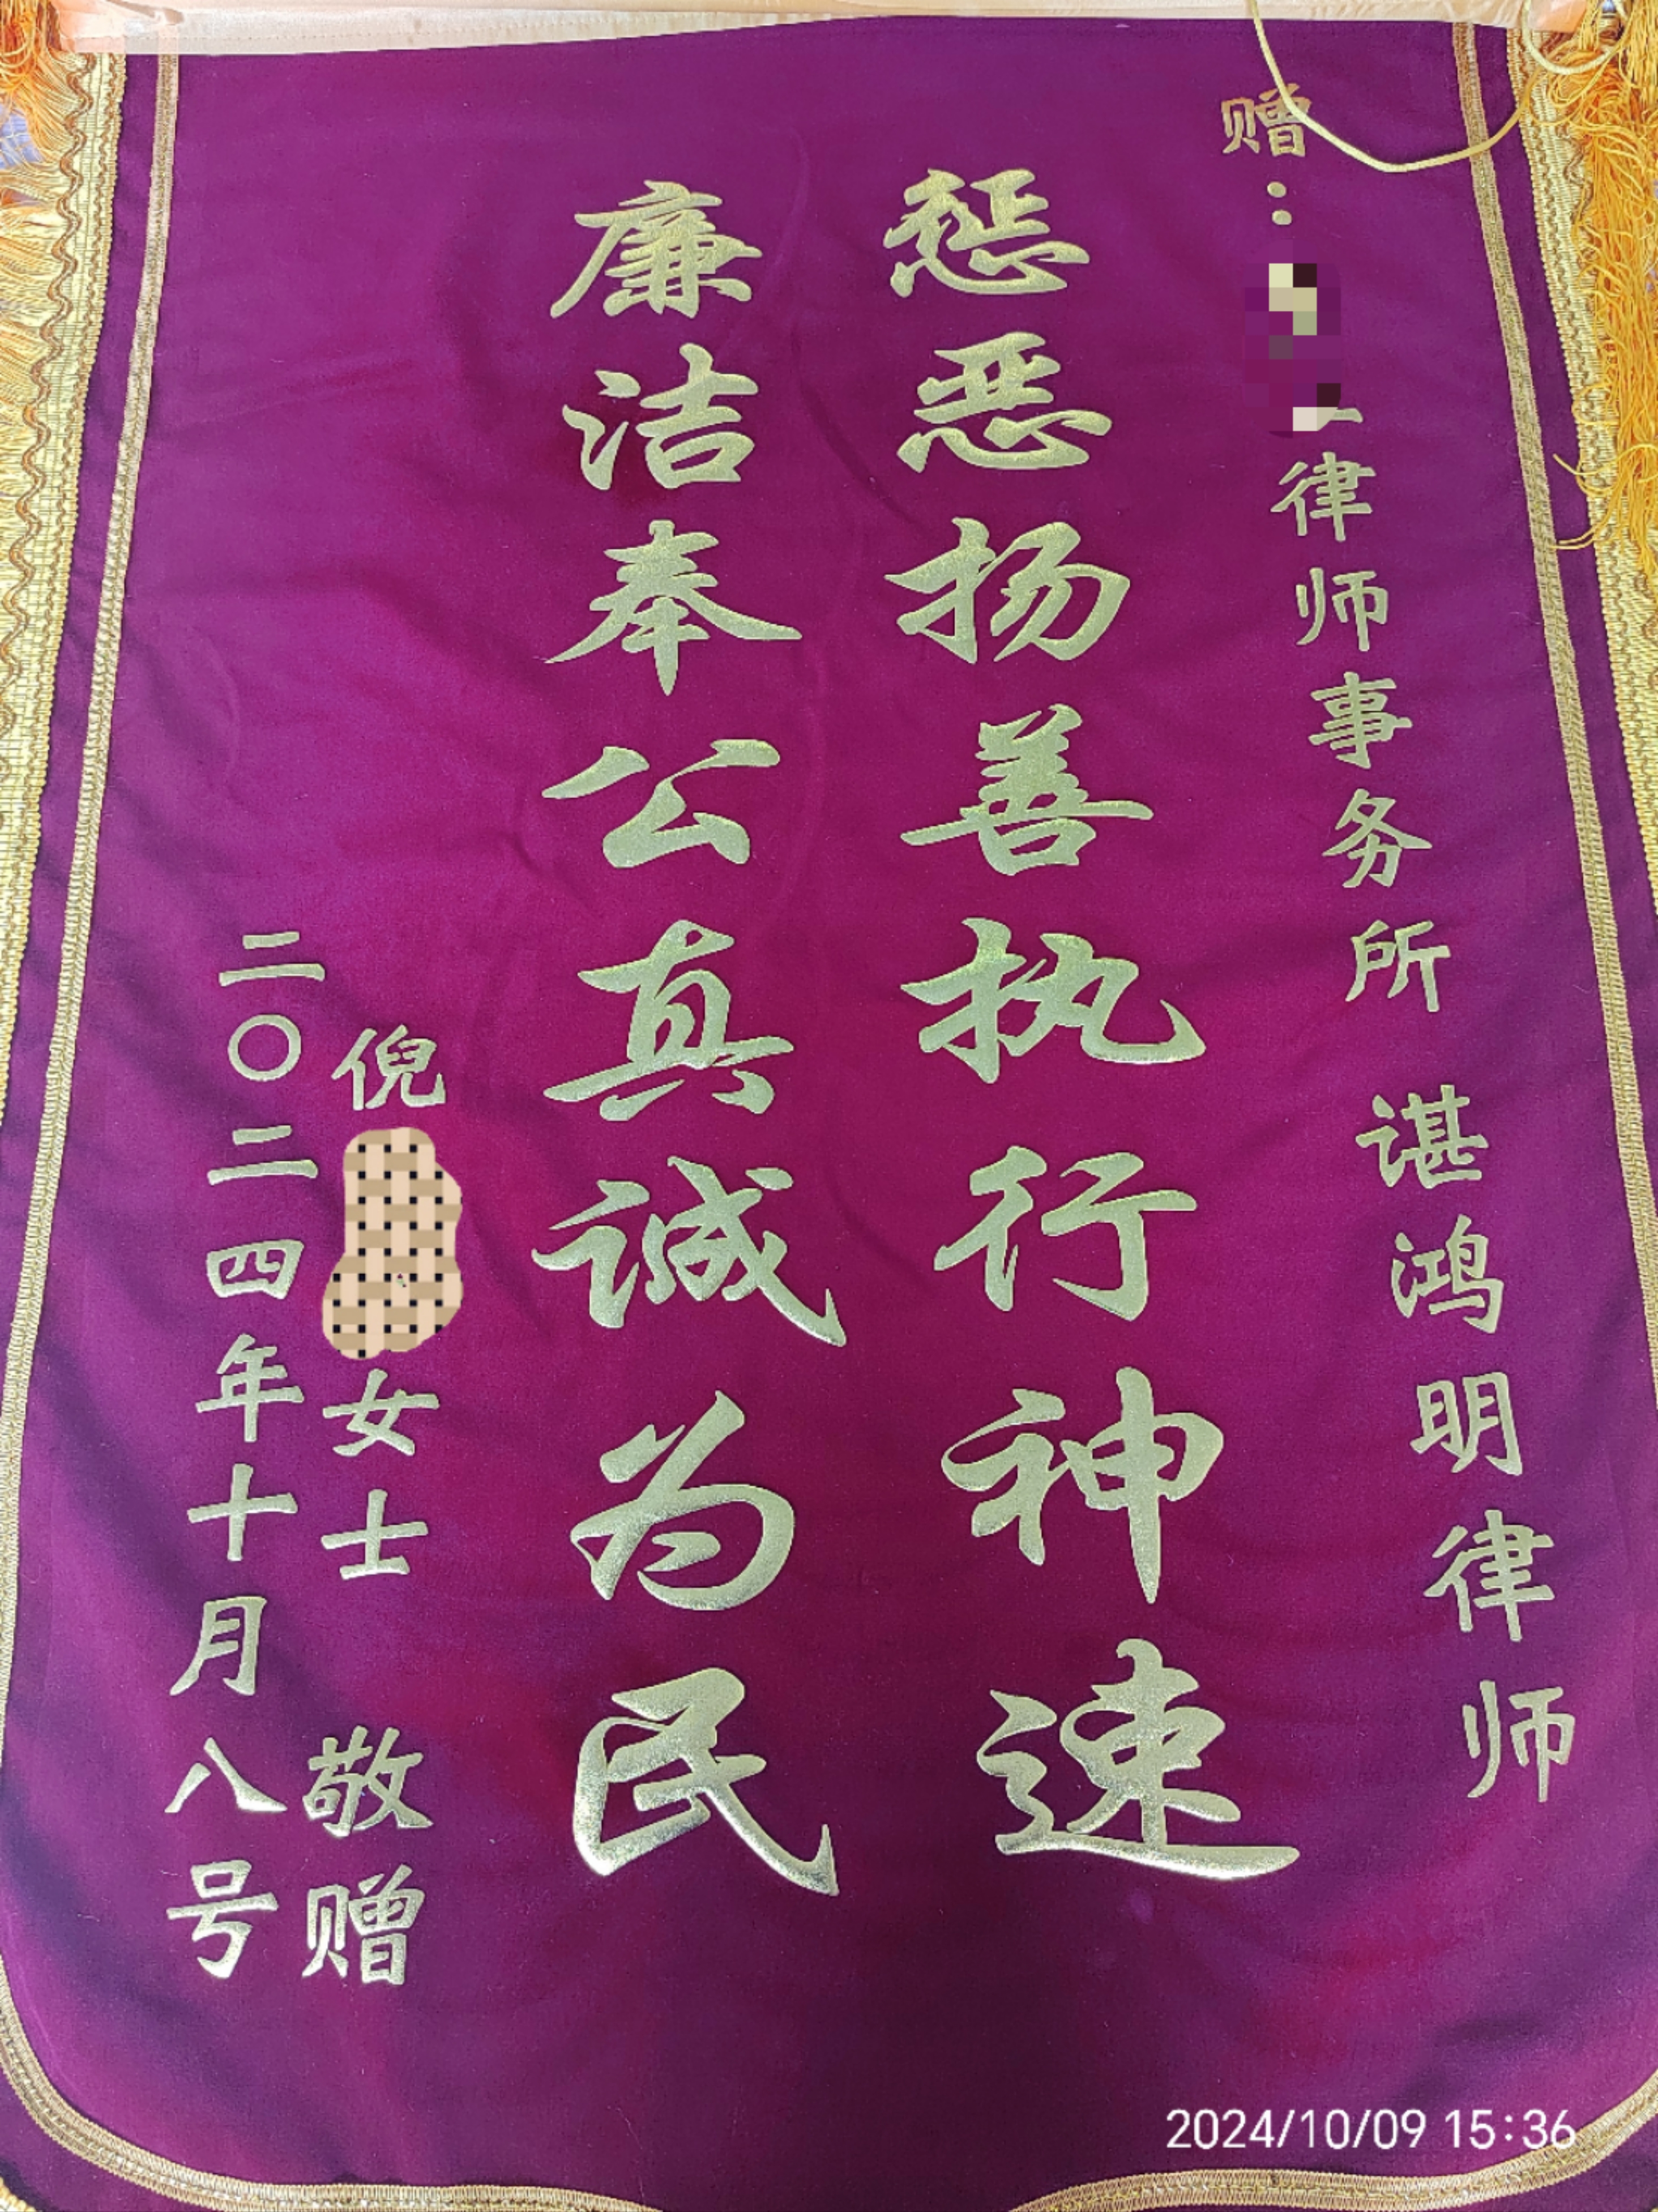 赠：
律师事务所 谌鸿明律师
惩恶扬善执行神速
廉洁奉公真诚为民
倪
女士 敬赠
二〇二四年十月八号
2024/10/09 15:36